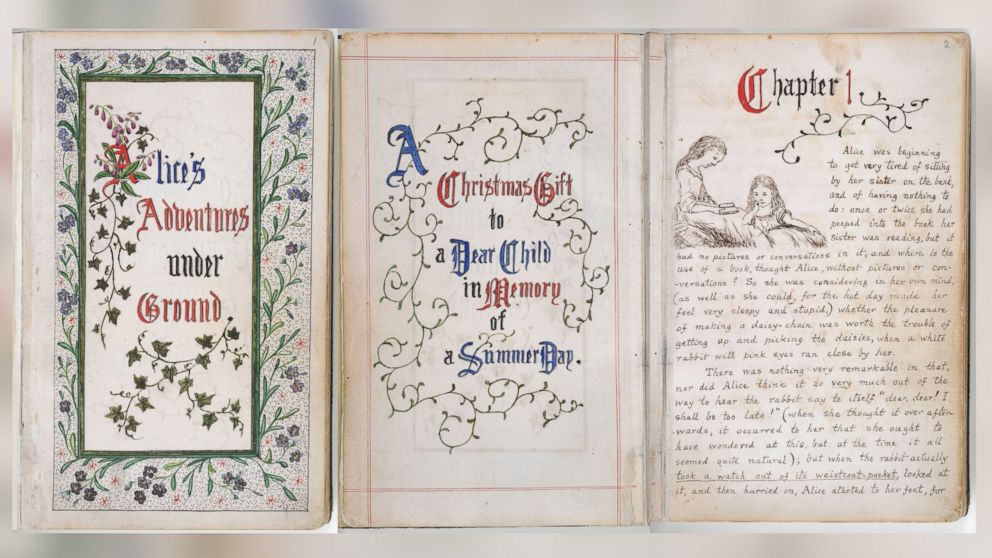 1
Alice's
Adventures
under
Ground.
A
Christmas Gift
to
a Dear Child
in Memory
of
a Summer Day.
2
Chapter 1
Alice was beginning
to get very tired of sitting
by her sister on the bank,
and of having nothing to
do: once or twice she had
peeped into the book her
sister was reading, but it
had no pictures or conversations in it, and where is the
use of a book, thought Alice, without pictures or con-
-versations? So she was considering in her own mind,
(as well as she could, for the hot day made her
feel very sleepy and stupid,) whether the pleasure
of making a daisy-chain was worth the trouble of
getting up and picking the daisies, when a white
rabbit with pink eyes ran close by her.
There was nothing very remarkable in that,
nor did Alice think it so very much out of the
way to hear the rabbit say to itself "dear, dear! I
shall be too late!" (when she thought it over after-
-wards, it occurred to her that she ought to
have wondered at this, but at the time it all
seemed quite natural); but when the rabbit actually
took a watch out of its waistcoat-pocket, looked at
it, and then hurried on, Alice started to her feet, for